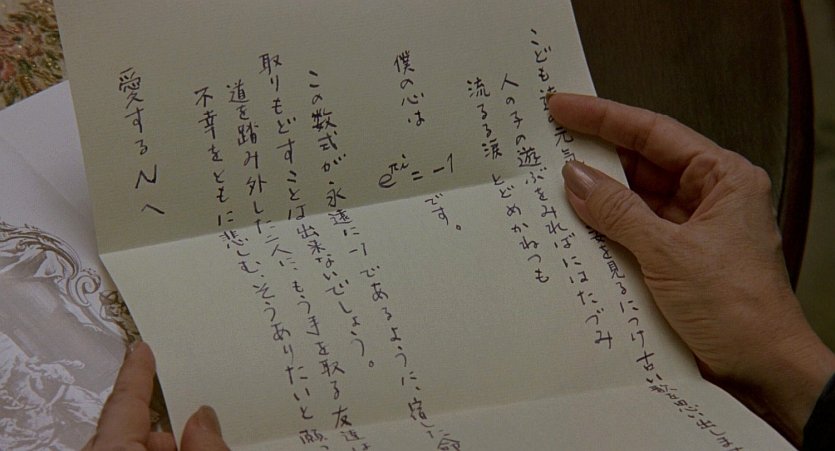 こども達の元気 姿を見るにつけ古い
人の子の遊ぶをみればにはたづみ
流るる涙 とどめかねつも
僕の心は e^πi = -1 です。
この数式が永遠に-1であるように、宿した命
取りもどすことは出来ないでしょう。
道を踏み外した二人に もう手を取る友達は
不幸をともに悲しむ、そうありたいと願
愛するNへ